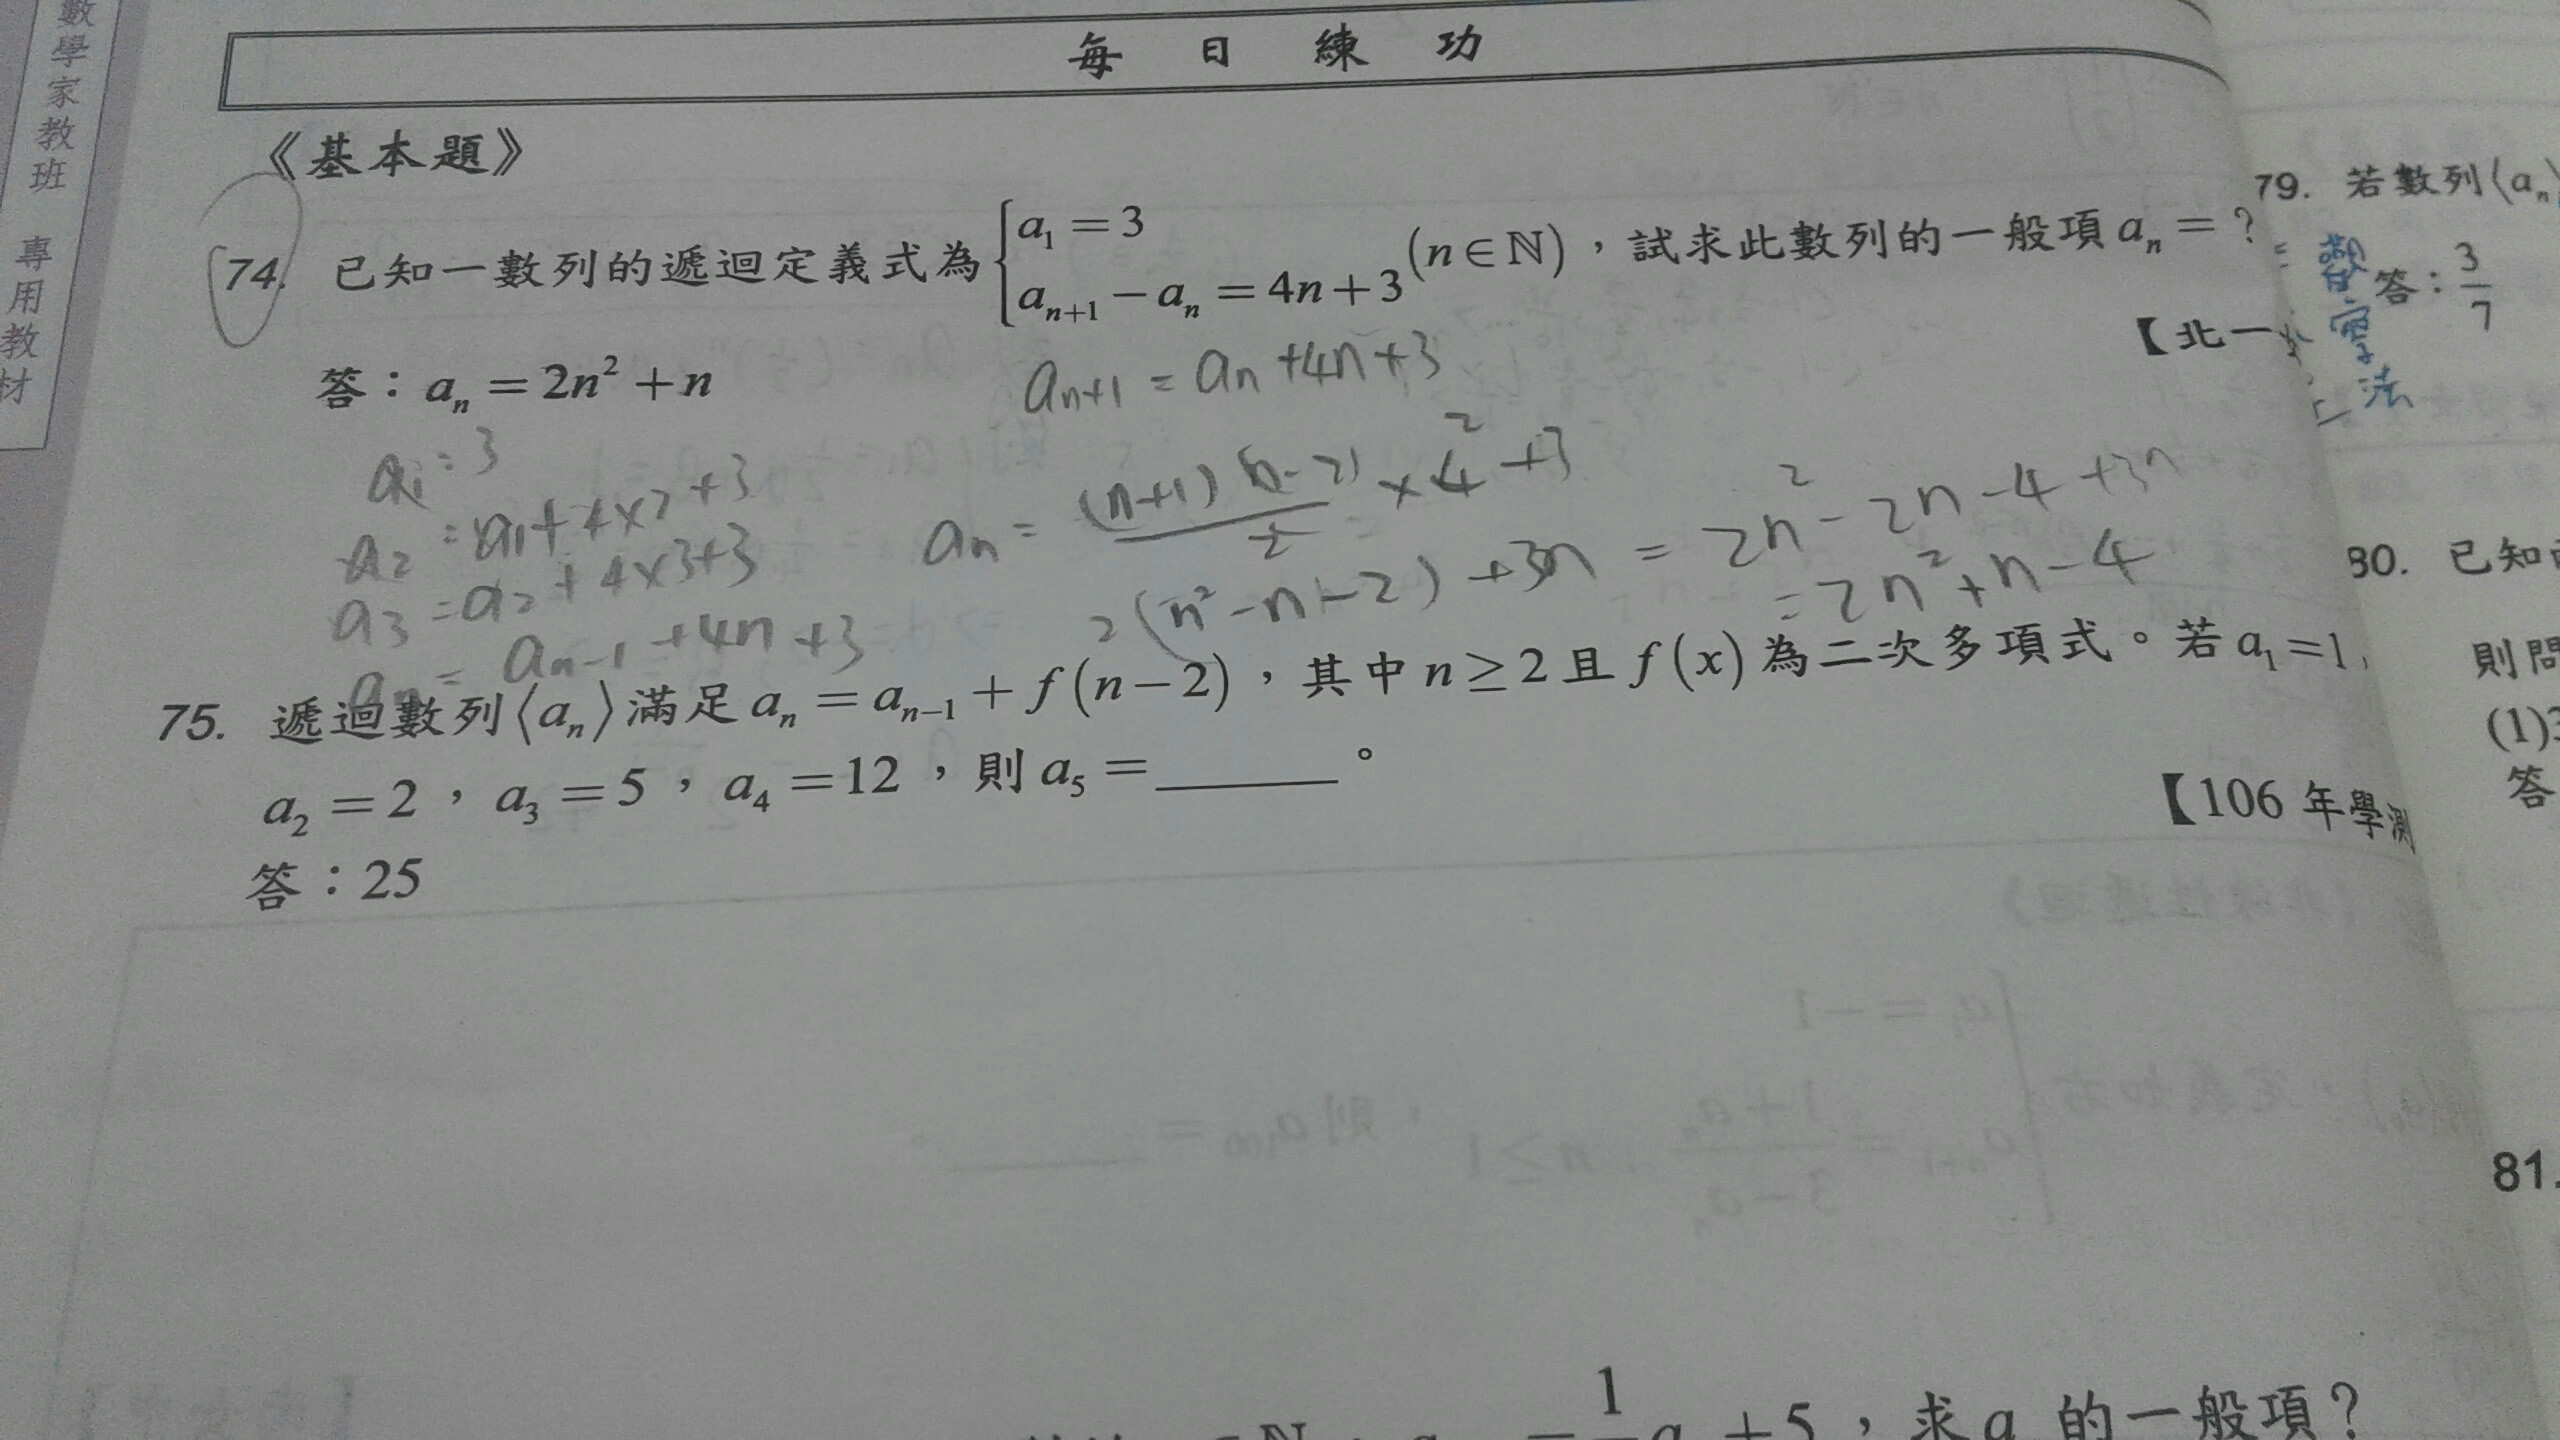 數學家教班 專用教材
每日練功
《基本題》
74. 已知一數列的遞迴定義式為 { a₁ = 3
aₙ₊₁ − aₙ = 4n + 3 (n∈ℕ)，試求此數列的一般項 aₙ = ?
【北一
答：aₙ = 2n² + n
aₙ₊₁ = aₙ + 4n + 3
a₁ = 3
a₂ = a₁ + 4×2 + 3
a₃ = a₂ + 4×3 + 3
aₙ = aₙ₋₁ + 4n + 3
aₙ = (n+1)(n-2)/2 × 4 2 + 3
2(n² − n − 2) + 3n = 2n² − 2n − 4 + 3n
= 2n² + n − 4
75. 遞迴數列⟨aₙ⟩滿足 aₙ = aₙ₋₁ + f(n−2)，其中 n ≥ 2 且 f(x) 為二次多項式。若 a₁ = 1,
a₂ = 2，a₃ = 5，a₄ = 12，則 a₅ = ______。
【106 年學測
答：25
1
a + 5，求 a 的一般項？
79. 若數列⟨aₙ⟩
答：3/7
法
80. 已知
則問
(1)3
答
81.